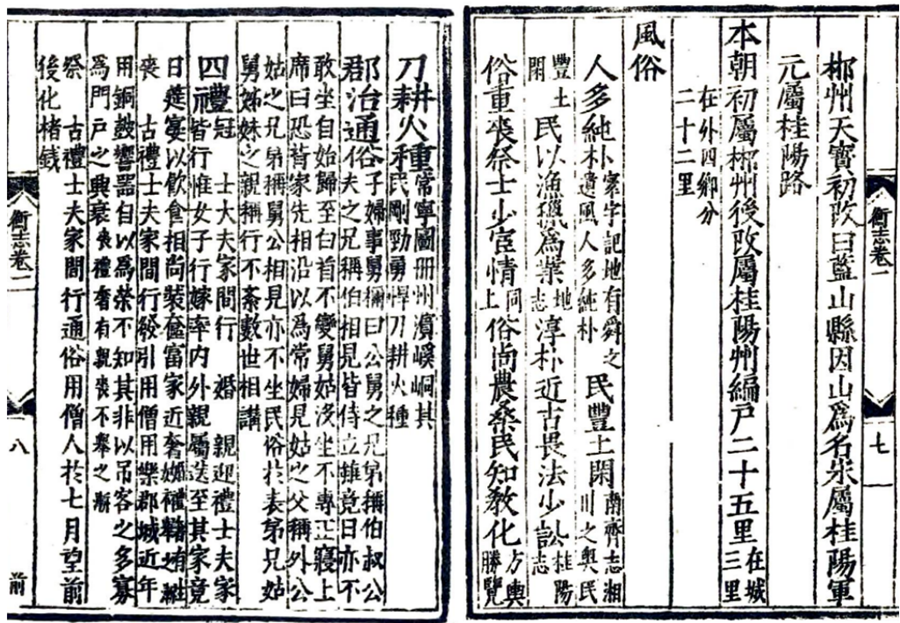 衡志卷一
七
郴州天寶初改曰藍山縣因山爲名宋屬桂陽軍
元屬桂陽路
本朝初屬郴州後改屬桂陽州編戶二十五里在城三里
在外四鄉分
二十二里
風俗
人多純朴寰宇記地有舜之遺風人多純朴民豐土閑南齊志湘川之奧民
豐土閑民以漁獵爲業地志淳朴近古畏法少訟桂陽志
俗重喪祭士少宦情同上俗尚農桑民知敎化方輿勝覽
刀耕火種常寧圖冊州濱嵠峒其
民剛勁勇悍刀耕火種
郡治通俗子婦事舅稱曰公舅之兄弟稱伯叔公
夫之兄稱伯相見皆侍立雖竟日亦不
敢坐自始歸至白首不變舅姑沒坐不專正寢上
席曰恐背家先相沿以爲常婦見姑之父稱外公
姑之兄弟稱舅公相見亦不坐民俗於表弟兄姑
舅姊妹之親稱行不紊數世相講
四禮冠 士大夫家間行 婚 親迎禮士夫家
皆行惟女子行嫁率內外親屬送至其家竟
日筵宴以飲食相尚裝奩富家近奢婚禮
喪 古禮士夫家間行發引用僧用樂郡城近年
用銅鼓響器自以爲榮不知其非以吊客之多寡
爲門戶之興衰喪禮奢有親喪不舉之漸
祭 古禮士夫家間行通俗用僧人於七月望前
後化楮錢
衡志卷一
八
前